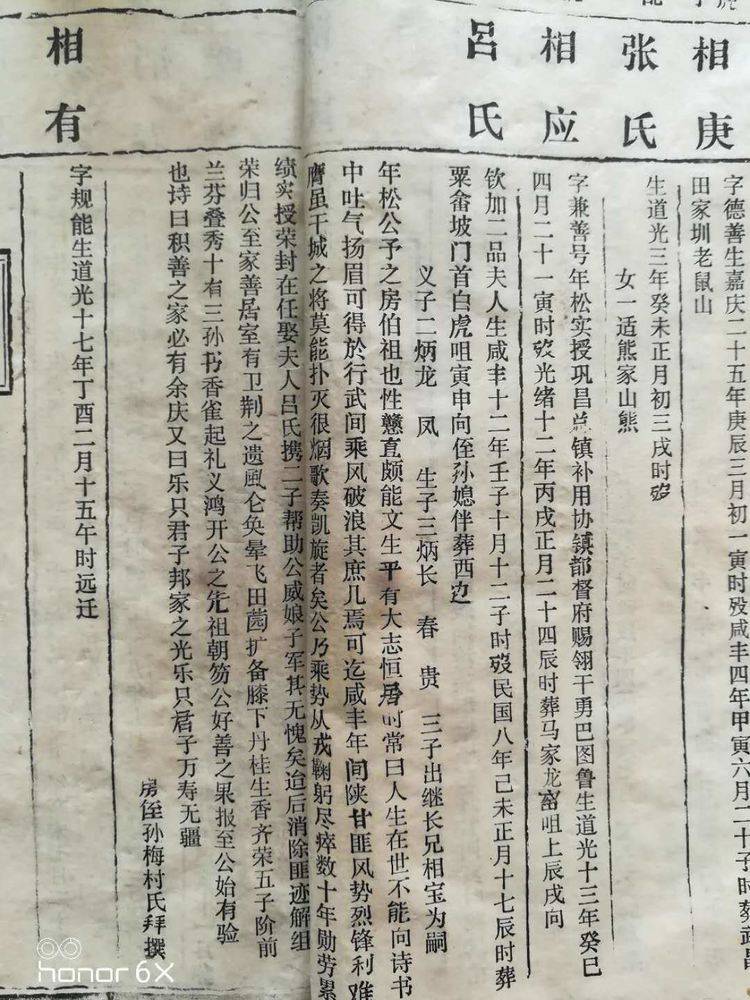 相庚
字德善生嘉庆二十五年庚辰三月初一寅时殁咸丰四年甲寅六月二十子时葬武昌
田家圳老鼠山
张氏
生道光三年癸未正月初三戌时殁
女一适熊家山熊
相应
字兼善号年松实授巩昌总镇补用协镇都督府赐翎干勇巴图鲁生道光十三年癸巳
四月二十一寅时殁光绪十二年丙戌正月二十四辰时葬马家龙窝咀上辰戌向
吕氏
钦加二品夫人生咸丰十二年壬子十月十二子时殁民国八年己未正月十七辰时葬
粟畬坡门首白虎咀寅申向侄孙媳伴葬西边
义子二炳龙 凤 生子三炳长 春 贵 三子出继长兄相宝为嗣
年松公予之房伯祖也性戆直颇能文生平有大志恒居时常曰人生在世不能向诗书
中吐气扬眉可得於行武间乘风破浪其庶几焉可迄咸丰年间陕甘匪风势烈锋利难
膺虽干城之将莫能扑灭很烟歌奏凯旋者矣公乃乘势从戎鞠躬尽瘁数十年勋劳累
绩实授荣封在任娶夫人吕氏携二子帮助公威娘子军其无愧矣迨后消除匪迹解组
荣归公至家善居室有卫荆之遗风仑奂晕飞田园扩备膝下丹桂生香齐荣五子阶前
兰芬叠秀十有三孙书香雀起礼义鸿开公之先祖朝笏公好善之果报至公始有验
也诗曰积善之家必有余庆又曰乐只君子邦家之光乐只君子万寿无疆
房侄孙梅村氏拜撰
相有
字规能生道光十七年丁酉二月十五午时远迁
honor 6X